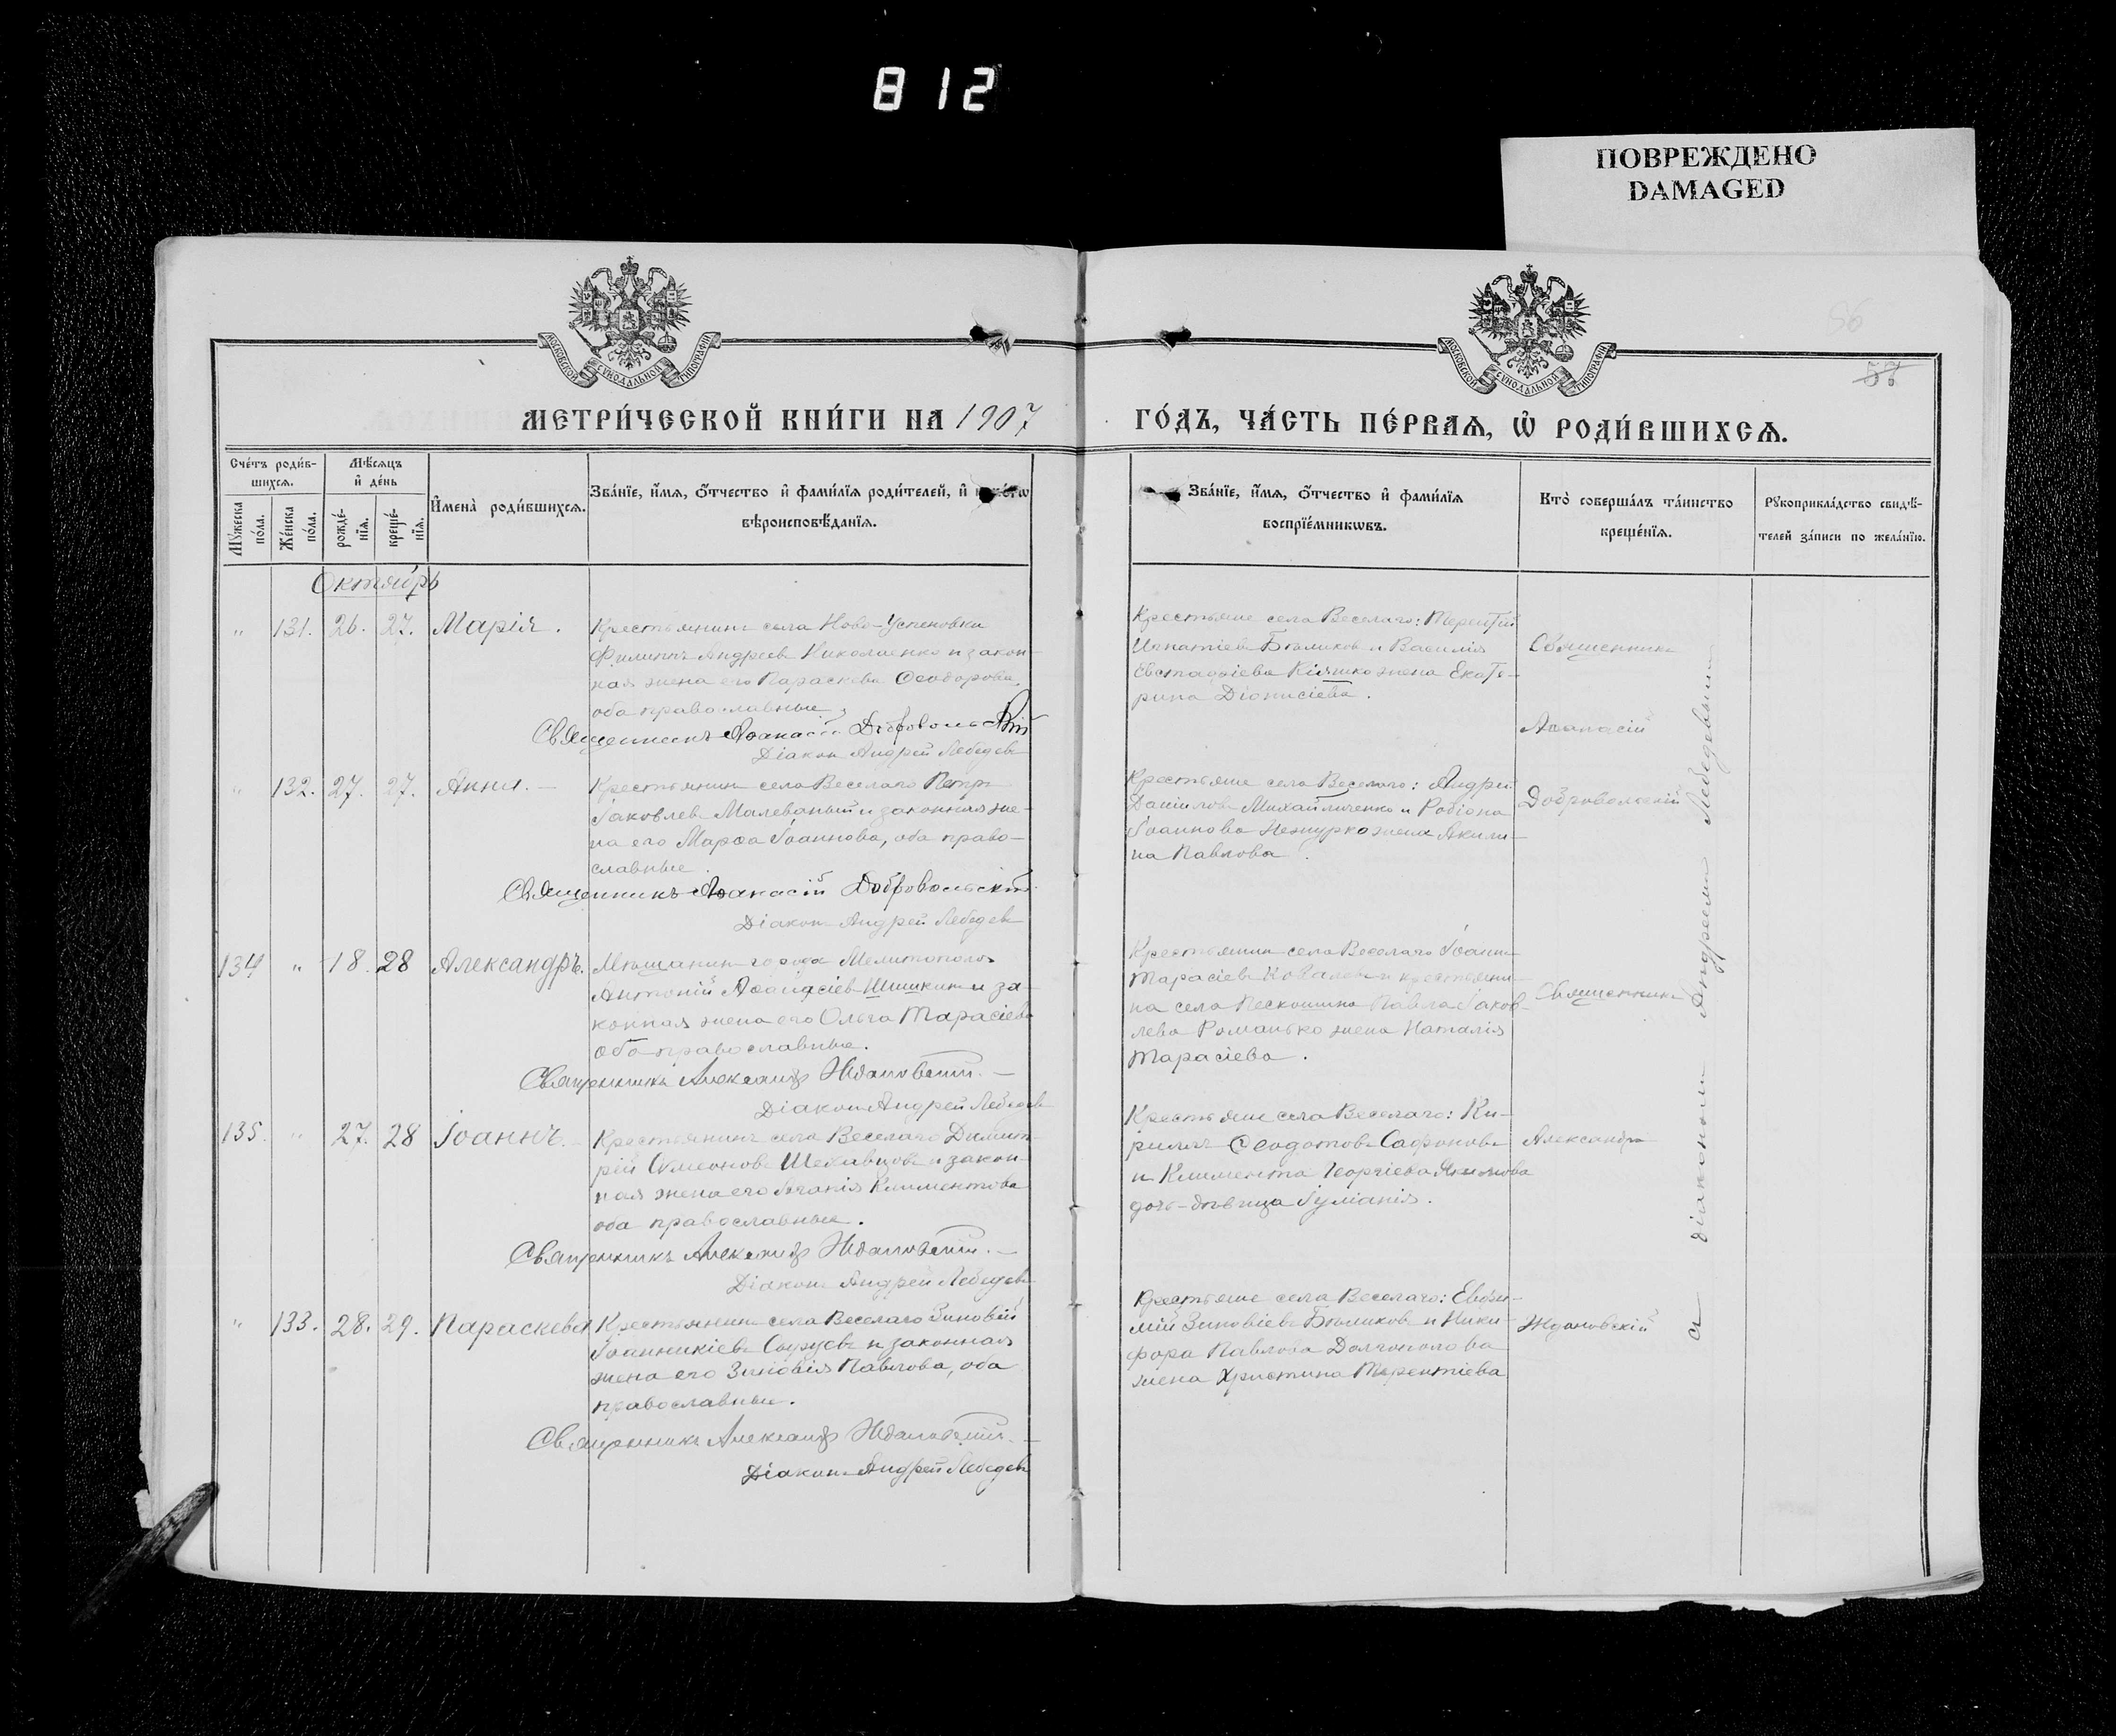 812
ПОВРЕЖДЕНО
DAMAGED
МОСКОВСКОЙ СѴНОДАЛЬНОЙ ТИПОГРАФІИ
МОСКОВСКОЙ СѴНОДАЛЬНОЙ ТИПОГРАФІИ
57
МЕТРИ́ЧЕСКОЙ КНИ́ГИ НА 1907
ГО́ДЪ, ЧА́СТЬ ПЕ́РВАѦ, Ѽ РОДИ́ВШИХСѦ.
Сче́тъ роди́в-
шихсѧ.
Мѣ́сѧцъ
и҆ де́нь
Мꙋ́жеска по́ла.
Же́нска по́ла.
рожде́-
нїѧ.
креще́-
нїѧ.
И҆мена̀ роди́вшихсѧ.
Зва́нїе, и҆́мѧ, ѻ҆́тчество и҆ фами́лїѧ роди́телей, и҆
вѣроисповѣ́данїѧ.
Зва́нїе, и҆́мѧ, ѻ҆́тчество и҆ фами́лїѧ
воспрїе́мникѡвъ.
Кто̀ соверша́лъ та́инство
креще́нїѧ.
Рꙋкоприкла́дство свидѣ́-
телей за́писи по жела́нїю.
Октябрь
" 131. 26. 27. Марія.
Крестьянинъ села Ново-Успеновки
Филиппъ Андреевъ Николаенко и закон-
ная жена его Параскева Ѳеодорова,
оба православные,
Священникъ Аѳанасій Добровольскій
Діаконъ Андрей Лебедевъ
Крестьяне села Веселаго: Терентій
Игнатіевъ Бѣликовъ и Василія
Евстафіева Кіяшко жена Екате-
рина Діонисіева.
Священникъ
Аѳанасій
Добровольскій
" 132. 27. 27. Анна. —
Крестьянинъ села Веселаго Петръ
Іаковлевъ Малеваный и законная же-
на его Марѳа Іоаннова, оба право-
славные.
Священникъ Аѳанасій Добровольскій
Діаконъ Андрей Лебедевъ
Крестьяне села Веселаго: Андрей
Даніиловъ Михайличенко и Родіона
Іоаннова жена Акили-
на Павлова.
134 " 18. 28 Александръ.
Мѣщанинъ города Мелитополя
Антоній Аѳанасіевъ Шишкинъ и за-
конная жена его Ольга Тарасіева
оба православные.
Священникъ Александръ Ждановскій. —
Діаконъ Андрей Лебедевъ
Крестьянинъ села Веселаго Іоаннъ
Тарасіевъ Ковалевъ и крестьяни-
на села Пескошина Павла Іаков-
лева Романько жена Наталія
Тарасіева.
Священникъ
Александръ
Ждановскій
135. " 27. 28 Іоаннъ.
Крестьянинъ села Веселаго Димит-
рій Симеоновъ Шехавцовъ и закон-
ная жена его Агапія Климентова
оба православные.
Священникъ Александръ Ждановскій. —
Діаконъ Андрей Лебедевъ
Крестьяне села Веселаго: Ки-
риллъ Ѳеодотовъ Сафоновъ
и Климента Георгіева Якимова
дочь-дѣвица Іуліанія.
" 133. 28. 29. Параскева
Крестьянинъ села Веселаго Зиновій
Іоанникіевъ и законная
жена его Зиновія Павлова, оба
православные.
Священникъ Александръ Ждановскій. —
Діаконъ Андрей Лебедевъ
Крестьяне села Веселаго: Евѳи-
мій Зиновіевъ Бѣликовъ и Ники-
фора Павлова Долгополова
жена Христина Терентіева
съ діакономъ Андреемъ Лебедевымъ